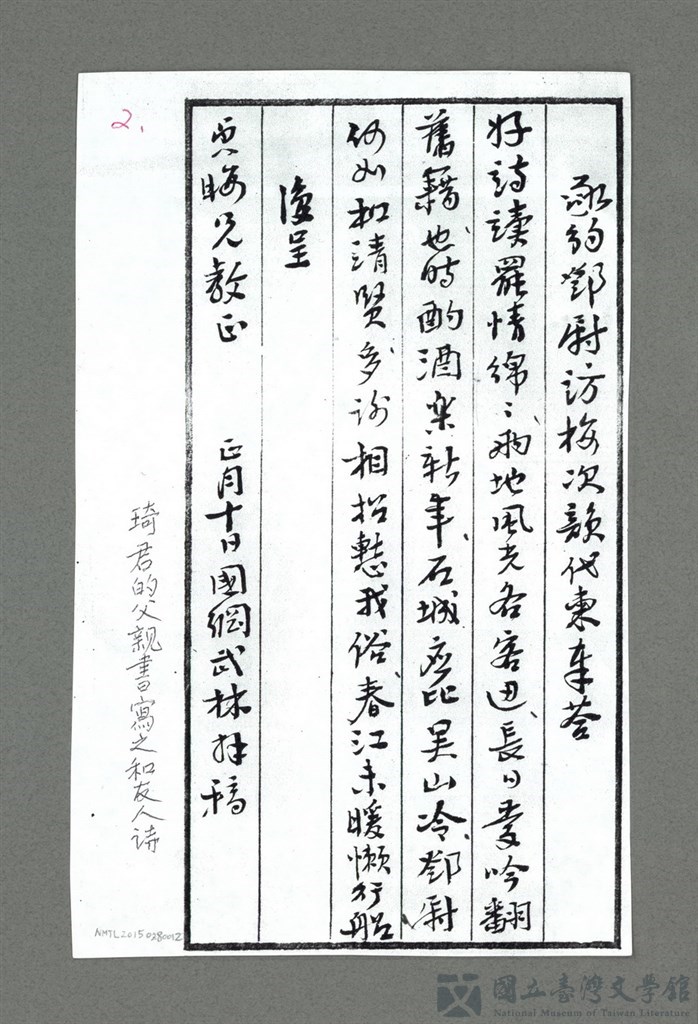 承約鄧尉訪梅次韻代柬奉答
好詩讀罷情綿〻、兩地風光各客邊、長日愛吟翻
舊籍、也時酌酒樂新年、石城應比吳山冷、鄧尉
何如和靖賢、多謝相招慙我俗、春江未暖懶行船
呈
晦兄教正　正月十日國綱武林拜稿
2.
琦君的父親書寫之和友人詩
NMTL20150280012
國立臺灣文學館
National Museum of Taiwan Literature